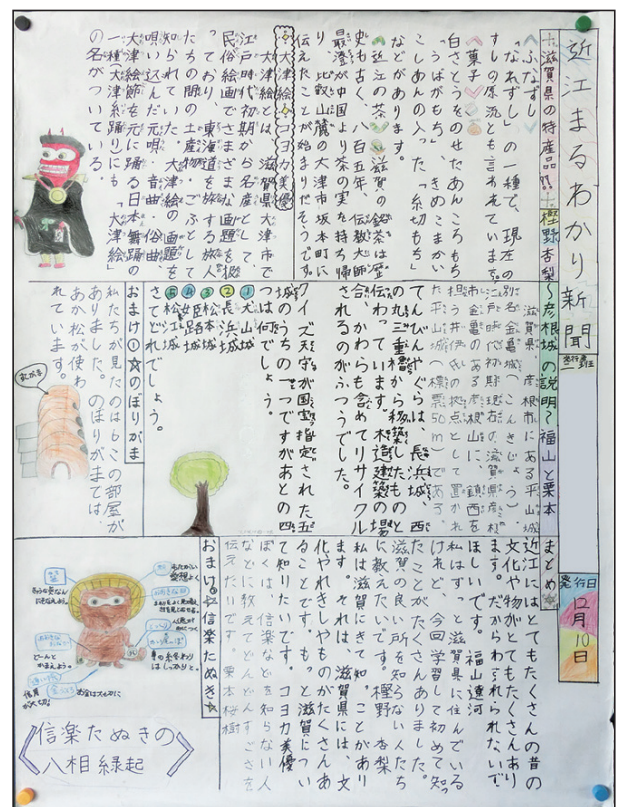 近江まるわかり新聞
発行者 班
発行日
12月10日
滋賀県の特産品!!
樫野杏梨
ふなずし
「なれずし」の一種で、現在の
すしの原流とも言われています。
菓子
白さとうをのせたあんころもち
「うばがもち」、きめこまかい
こしあんの入った「糸切もち」
などがあります。
近江の茶 滋賀の銘茶は歴
史も古く、八百五年、伝教大師
最澄が中国より茶の実を持ち帰
り、比叡山麓の大津市坂本町に
伝えたことが始まりだそうです。
大津絵 コヨカ美優
大津絵とは、滋賀県大津市で
江戸時代初期から名産としてきた
民俗絵画でさまざまな画題を扱
っており、東海道を旅する旅人
たちの間の土産物・ごふとして
知られていた。大津絵の画題を
唄い込んだ元唄・音曲・俗曲、
大津絵節を元に踊る日本舞踊の
一種大津絵踊りにも「大津絵」
の名がついている。
〜彦根城の説明〜
福山と栗本
滋賀県、彦根市にある平山城
別名金亀城(こんきじょう)。
江戸時代初期現在の滋賀県彦根
市金亀のある彦根山に、鎮西を
担う井伊氏の拠点として置かれ
た平山城(標票50m)である。
てんびんやぐらは、長浜城、西
の丸三重櫓から移築したものと
伝わっています。木造建築の場
合、かわらも含めてリサイクル
されるのがふつうでした。
クイズ天守が国宝指定された五
城のうちの一つですがあとの四
つは何でしょう。
①犬山城
②長浜城
③松本城
④姫路城
⑤松江城
さてどれでしょう。
おまけ①☆のぼりがま
私たちが見たのは6この部屋が
ありました。のぼりがまては、
あか松が、使わ
れています。
まとめ☆
近江にはとてもたくさんの昔の
文化や物がとてもたくさんあり
ます。だからわすれられないで
ほしいです。福山蓮河
私はずっと滋賀県に住んでいる
けれど、今回学習して初めて知っ
たことがたくさんありました。
滋賀の良い所を知らない人たち
に教えたいです。樫野 杏梨
私は滋賀にきて知ることがあり
ます。それは、滋賀県には、文
化やれきしやものがたくさんあ
ることです。もっと滋賀につい
て知りたいです。コヨカ美優
ぼくは、信楽などを知らない人
などに教えてどんどんすごさを
伝えたいです。栗本桜樹
おまけ☆信楽たぬき☆
どーんと
かまえよう。
お金は大切に
信用
が大切
〈信楽たぬきの
八相縁起〉